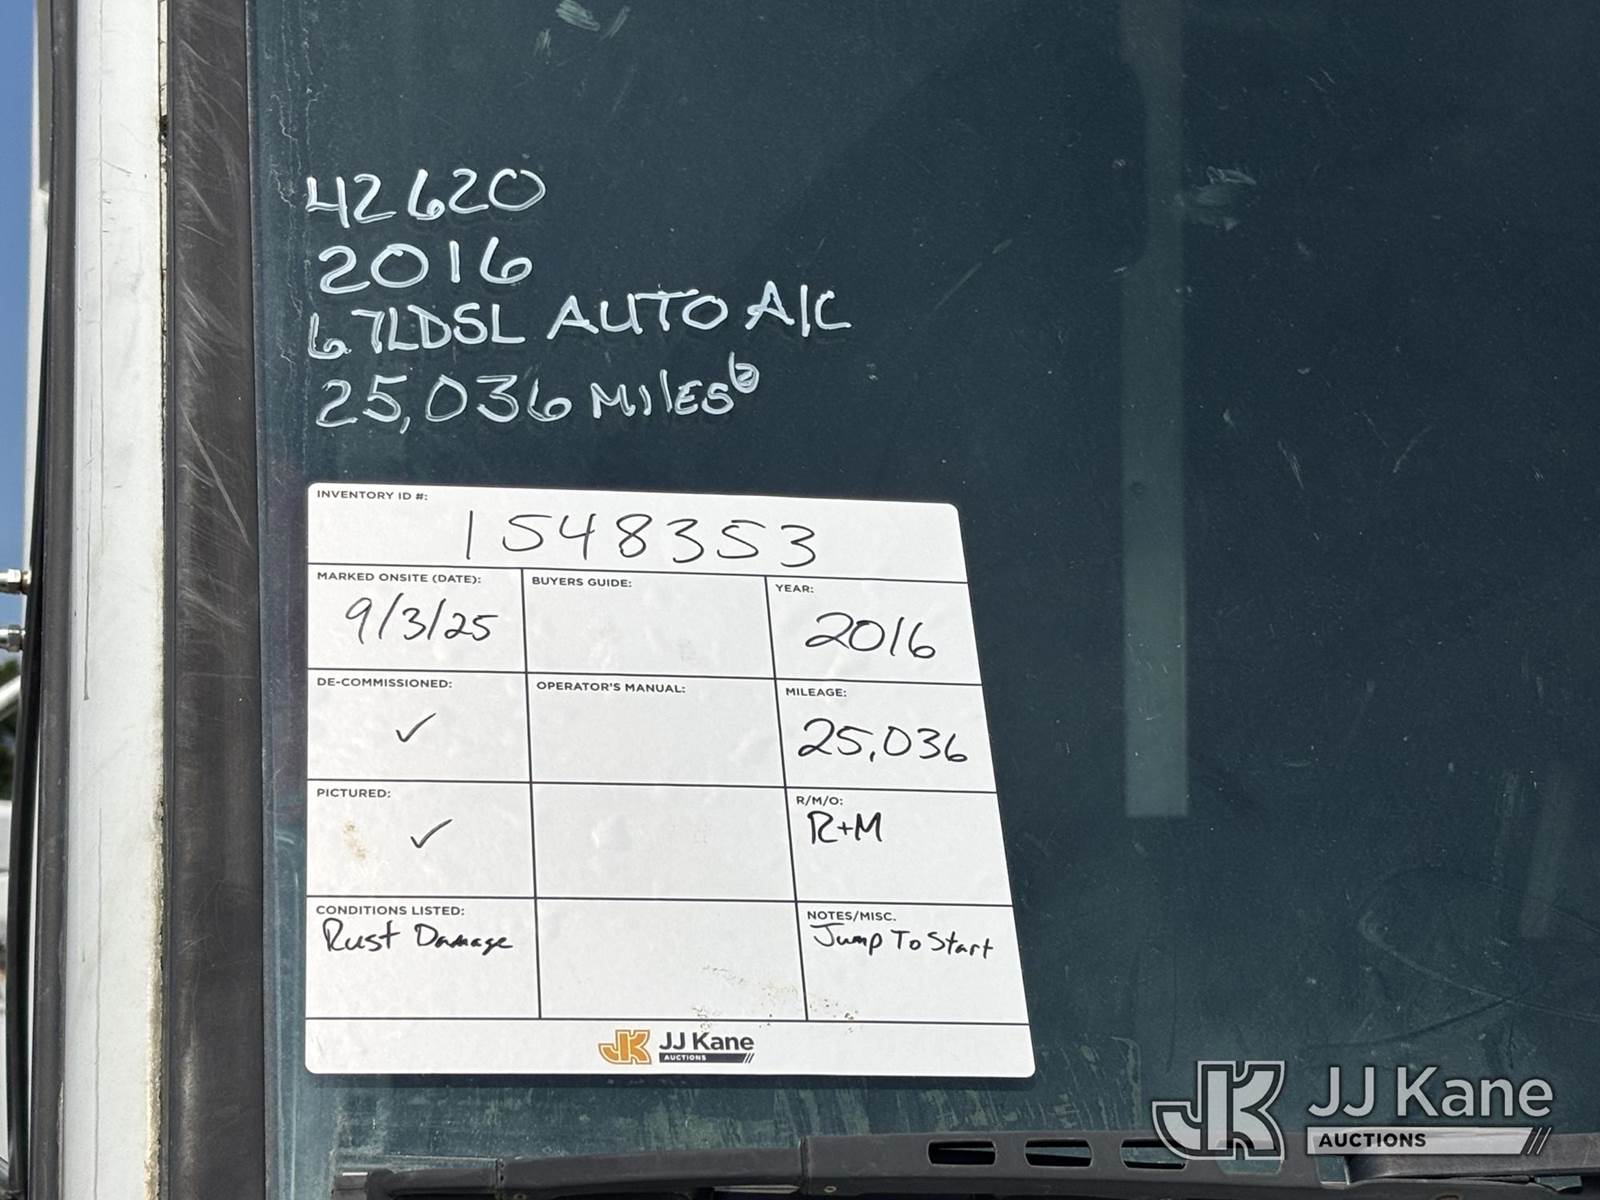 42620
2016
6.7LDSL AUTO A/C
25,036 MILES
INVENTORY ID #:
1548353
MARKED ONSITE (DATE):
9/3/25
BUYERS GUIDE:
YEAR:
2016
DE-COMMISSIONED:
✓
OPERATOR'S MANUAL:
MILEAGE:
25,036
PICTURED:
✓
R/M/O:
R+M
CONDITIONS LISTED:
Rust Damage
NOTES/MISC.
Jump To Start
JK JJ Kane
AUCTIONS
JK JJ Kane
AUCTIONS